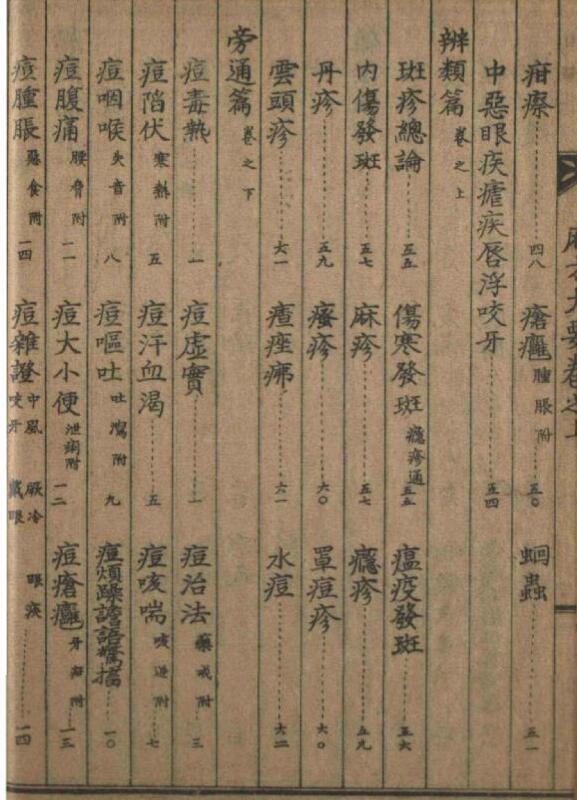 疳瘵 四八 瘡癰 腫脹附 五〇 蛔蟲 五一
中惡眼疾瘧疾唇浮咬牙 五四
辨類篇 卷之上
斑疹總論 五五 傷寒發斑 癮疹通 五五 瘟疫發斑 五六
內傷發斑 五七 麻疹 五七 癮疹 五九
丹疹 五九 瘙疹 六〇 罩痘疹 六〇
雲頭疹 六一 痤疿 六一 水痘 六二
旁通篇 卷之下
痘毒熱 一 痘虛實 一 痘治法 藥戒附 三
痘陷伏 寒熱附 五 痘汗血渴 五 痘咳喘 咳逆附 七
痘咽喉 失音附 八 痘嘔吐 吐瀉附 九 痘煩躁譫語驚搐 一〇
痘腹痛 腰脅附 一一 痘大小便 泄痢附 一二 痘瘡癰 牙疳附 一三
痘腫脹 惡食附 一四 痘雜證 中風 咬牙 厥冷 戴眼 眼疾 一四